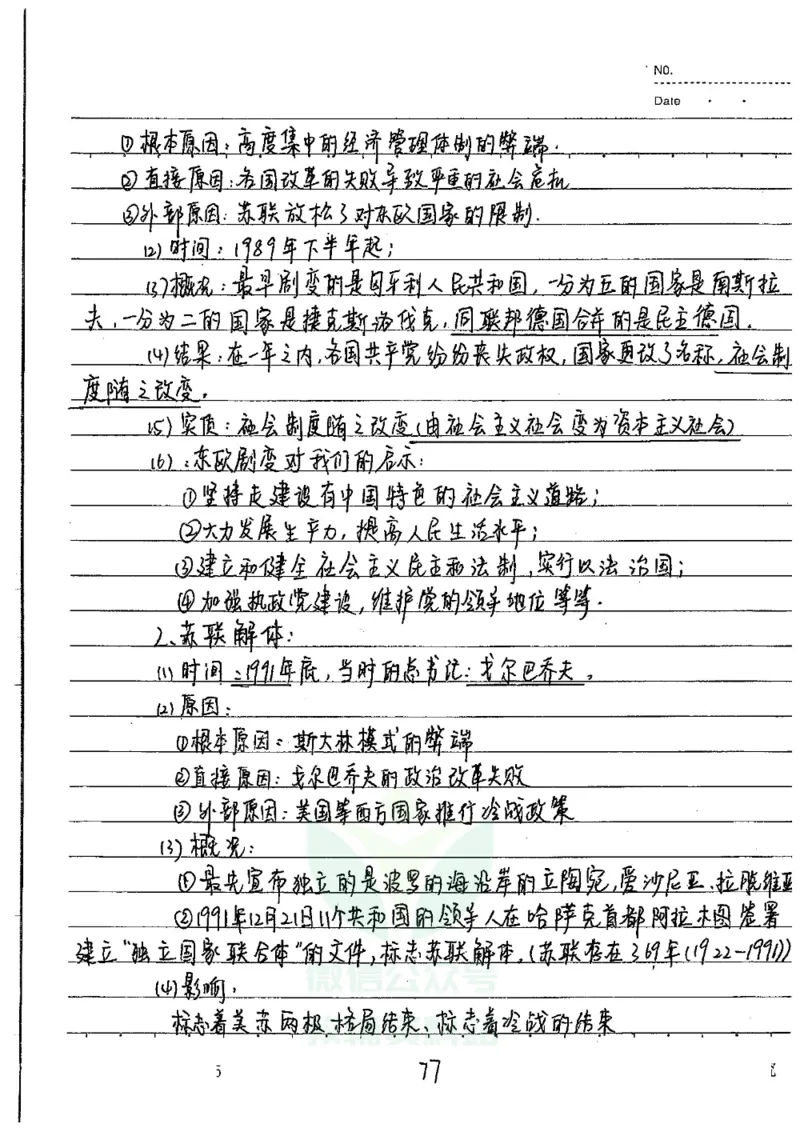 NO.
Date
①根本原因：高度集中的经济管理体制的弊端.
②直接原因：各国改革的失败导致严重的社会危机
③外部原因：苏联放松了对东欧国家的限制.
(2)时间：1989年下半年起；
(3)概况：最早剧变的是匈牙利人民共和国，一分为五的国家是南斯拉
夫，一分为二的国家是捷克斯洛伐克，同联邦德国合并的是民主德国。
(4)结果：在一年之内，各国共产党纷纷丧失政权，国家更改了名称，社会制
度随之改变。
(5)实质：社会制度随之改变(由社会主义社会变为资本主义社会)
(6)：东欧剧变对我们的启示：
①坚持走建设有中国特色的社会主义道路；
②大力发展生产力，提高人民生活水平；
③建立和健全社会主义民主和法制，实行以法治国；
④加强执政党建设，维护党的领导地位等等.
2、苏联解体：
(1)时间：1991年底，当时的总书记：戈尔巴乔夫。
(2)原因：
①根本原因：斯大林模式的弊端
②直接原因：戈尔巴乔夫的政治改革失败
③外部原因：美国等西方国家推行冷战政策
(3)概况：
①最先宣布独立的是波罗的海沿岸的立陶宛，爱沙尼亚、拉脱维亚
②1991年12月21日11个共和国的领导人在哈萨克首都阿拉木图签署
建立"独立国家联合体"的文件，标志苏联解体。(苏联存在了69年(1922-1991))
微信公众号
(4)影响：
标志着美苏两极格局结束、标志着冷战的结束
77